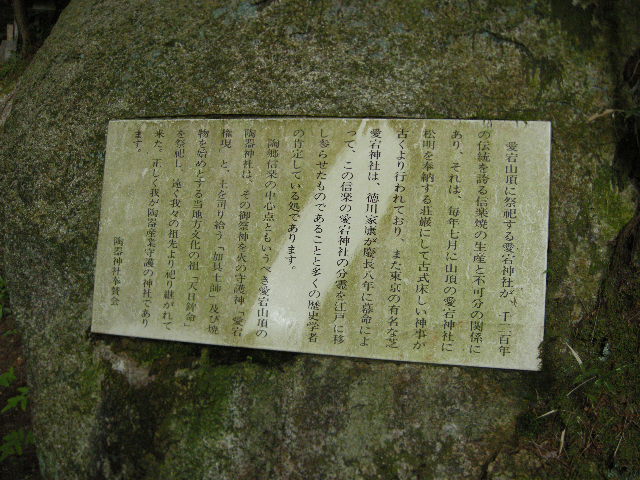 愛宕山頂に祭祀する愛宕神社が、千二百年
の伝統を誇る信楽焼の生産と不可分の関係に
あり、それは、毎年七月に山頂の愛宕神社に
松明を奉納する荘厳にして古式床しい神事が
古くより行われており、また東京の有名な芝
愛宕神社は、徳川家康が慶長八年に幕命によ
って、この信楽の愛宕神社の分霊を江戸に移
し参らせたものであることと多くの歴史学者
の肯定している処であります。
陶郷信楽の中心点ともいうべき愛宕山頂の
陶器神社は、その御祭神を火の守護神「愛宕
権現」と、土を司り給う「加具土師」及び焼
物を始めとする当地方文化の祖「天日鉾命」
を祭祀し、遠く我々の祖先より祀り継がれて
来た、正しく我が陶器産業守護の神社であり
ます。
陶器神社奉賛会